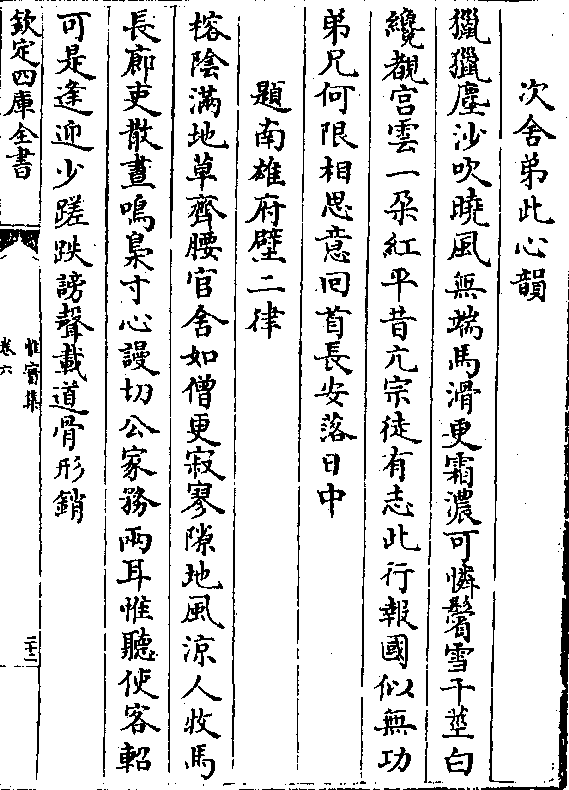 次舍弟此心韻
獵獵塵沙吹曉風無端馬滑更霜濃可憐鬢雪千莖白
纔覩宫雲一朶紅平昔亢宗徒有志此行報國似無功
弟兄何限相思意回首長安落日中
題南雄府壁二律
榕陰滿地草齊腰官舍如僧更寂寥隙地風涼人收馬
長廊吏散晝鳴梟寸心謾切公家務兩耳惟聽使客軺
可是逢迎少蹉跌謗聲載道骨形銷
欽定四庫全書
惟實集
卷六
二十二